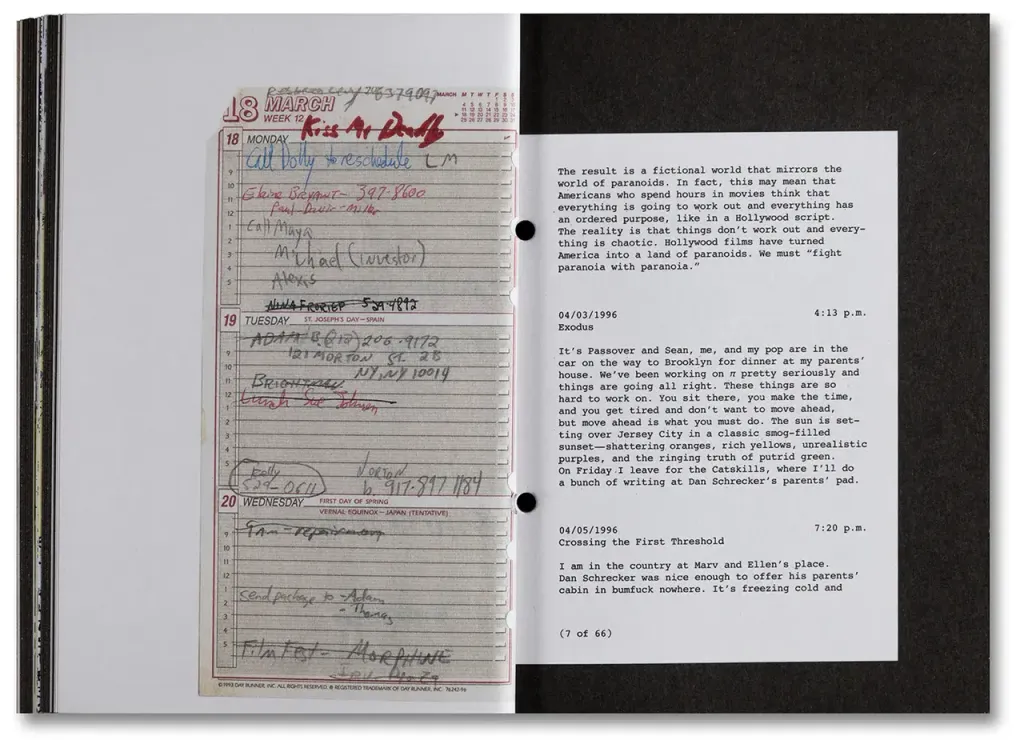 18 MARCH
WEEK 12
MARCH M T W T F S S
Kiss Me Deadly
18 MONDAY
Call Dolly to reschedule LM
Elaine Bryant - 397-8600
Call Maya
Michael (investor)
Alexis
NINA FRORIEP 529-4892
19 TUESDAY ST. JOSEPH'S DAY—SPAIN
ADAM B. (212) 206-9172
121 MORTON ST. 2B
NY, NY 10014
Dolly
529-0611
NORTON
b. 917-897 1184
20 WEDNESDAY FIRST DAY OF SPRING
VERNAL EQUINOX—JAPAN (TENTATIVE)
9am - repairman
send package to - Adam
- Thomas
Film Fest - MORPHINE
©1993 DAY RUNNER, INC. ALL RIGHTS RESERVED. ® REGISTERED TRADEMARK OF DAY RUNNER, INC.
The result is a fictional world that mirrors the
world of paranoids. In fact, this may mean that
Americans who spend hours in movies think that
everything is going to work out and everything has
an ordered purpose, like in a Hollywood script.
The reality is that things don't work out and every-
thing is chaotic. Hollywood films have turned
America into a land of paranoids. We must "fight
paranoia with paranoia."
04/03/1996 4:13 p.m.
Exodus
It's Passover and Sean, me, and my pop are in the
car on the way to Brooklyn for dinner at my parents'
house. We've been working on π pretty seriously and
things are going all right. These things are so
hard to work on. You sit there, you make the time,
and you get tired and don't want to move ahead,
but move ahead is what you must do. The sun is set-
ting over Jersey City in a classic smog-filled
sunset—shattering oranges, rich yellows, unrealistic
purples, and the ringing truth of putrid green.
On Friday I leave for the Catskills, where I'll do
a bunch of writing at Dan Schrecker's parents' pad.
04/05/1996 7:20 p.m.
Crossing the First Threshold
I am in the country at Marv and Ellen's place.
Dan Schrecker was nice enough to offer his parents'
cabin in bumfuck nowhere. It's freezing cold and
(7 of 66)